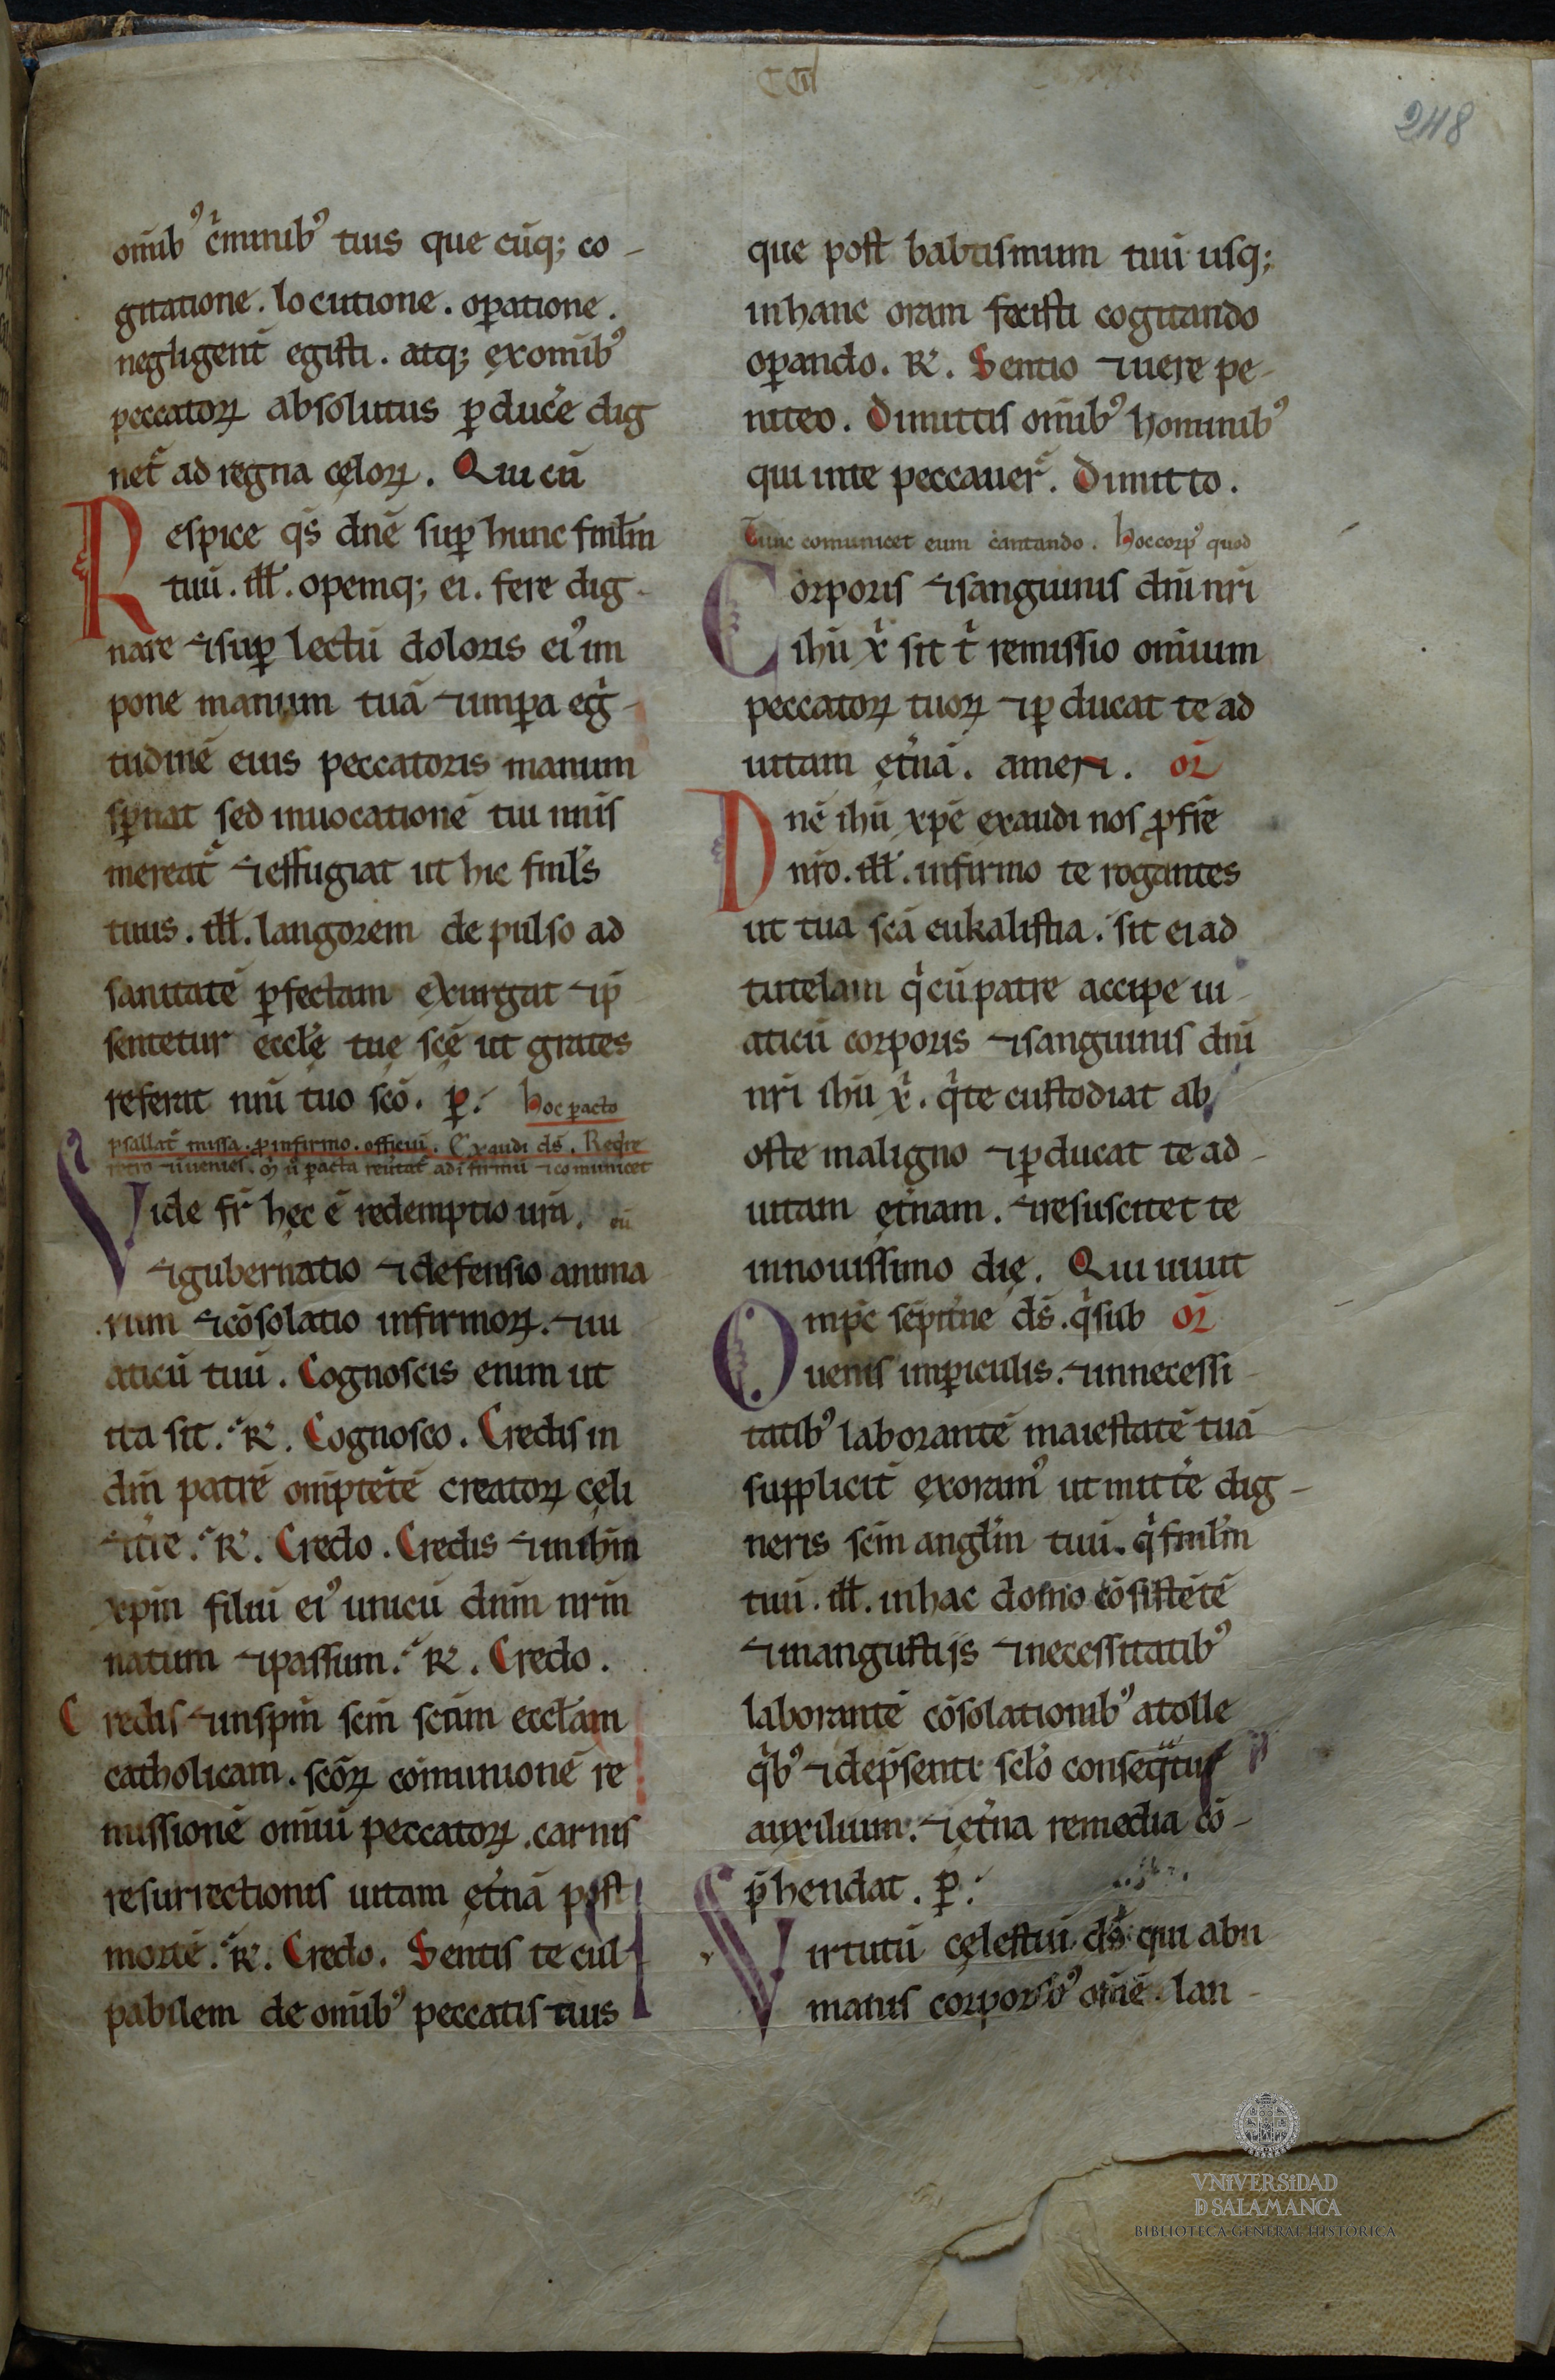 CCII
248
omīb⁹ c̄minib⁹ tuis que cūq; co-
gitatione. locutione. op̄atione.
negligent̄ egisti. atq; exomīb⁹
peccatoꝝ absolutus ꝑducˀe dig
net᷑ ad regna cęloꝝ. Qui cū
Respice q̄s dn̄e suꝑ hunc fml̄m
tuū. ill̄. opemq; ei. fere dig-
nare ⁊suꝑ lectū doloris ei⁹ im
pone manum tuā ⁊imꝑa egˀ-
tudinē eius peccatoris manum
sꝑnat sed inuocationē tui nn̄is
mereat᷑ ⁊effugiat ut hic fml̄s
tuus. ill̄. langorem depulso ad
sanitatē ꝑfectam exurgat ⁊ip̄
sentetur eccl̄ę tuę scę̄ ut grates
referat nn̄i tuo scō. ꝑ. hoc pacto
psallat᷑ missa. ꝓinfirmo. officiū. Exaudi ds̄. Reqˀre
ꝑacta reūtat᷑ adīfirmū ⁊comunicet
Vide fr̄ hęc ē redemptio ur̄a. eū
⁊gubernatio ⁊defensio anima
rum ⁊cōsolatio infirmoꝝ. ⁊ui
aticū tuū. Cognoscis enim ut
ita sit. ℟. Cognosco. Credis in
dm̄ patrē omīptētē creatoꝝ cęli
⁊tr̄e. ℟. Credo. Credis ⁊inihm̄
xpm̄ filiū ei⁹ unicū dnm̄ nrm̄
natum ⁊passum. ℟. Credo.
Credis ⁊inspm̄ scm̄ scām eccl̄am
catholicam. scōꝝ comunionē re
missionē omīū peccatoꝝ. carnis
resurrectionis uitam ęt̄nā post
mortē. ℟. Credo. Sentis te cul
pabilem de omīb⁹ peccatis tuis
que post babtismum tuū usq;
inhanc oram fecisti cogitando
oꝑando. ℟. Sentio ⁊uere pe-
niteo. Dimittis omīb⁹ hominib⁹
qui inte peccauer᷑. Dimitto.
Tunc comunicet eum cantando. hoc corp⁹ quod
Corporis ⁊sanguinis dn̄i nr̄i
ihū xˀ sit tˀ remissio omīum
peccatoꝝ tuoꝝ ⁊ꝑducat te ad
uitam ęt̄nā. amen. oꝛ̄
Dnē ihū xpē exaudi nos ꝓfrē
nr̄o. ill̄. infirmo te rogantes
ut tua scā eukalistia. sit ei ad
tutelam qˀcūpatre accipe ui-
aticū corporis ⁊sanguinis dn̄i
nr̄i ihū xˀ. qˀte custodiat ab
oste maligno ⁊ꝑducat te ad-
uitam ęt̄nam. ⁊resuscitet te
innouissimo dię. Qui uiuit
Ompc̄ sēpit̄ne ds̄. qˀsub oꝛ̄
uenis imꝑiculis. ⁊innecessi-
tatib⁹ laborantē maiestatē tuā
supplicit̄ exoram⁹ ut mittˀe dig-
neris scm̄ angl̄m tuū. qˀfml̄m
tuū. ill̄. inhac domo cōsistētē
⁊inangustijs ⁊necessitatib⁹
laborantē cōsolationib⁹ atolle
qˀb⁹ ⁊dep̄senti sclō conseqˀtus
auxilium. ⁊ęt̄na remedia cō-
p̄hendat. ꝑ.
Virtutū cęlestiū ds̄ qui abu
manis corporib⁹ omē. lan-
VNIVERSIDAD
D SALAMANCA
BIBLIOTECA GENERAL HISTÓRICA